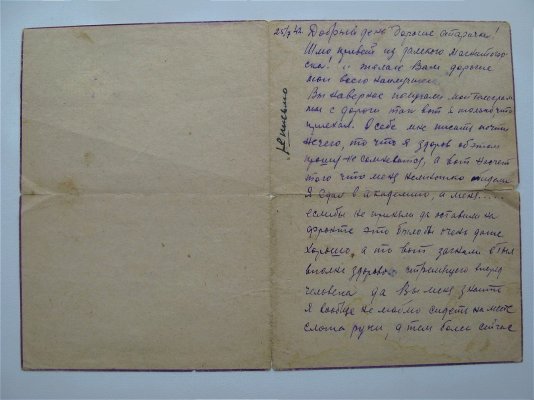 25/I 42. Добрый день Дорогие старички!
Шлю привет из далекого Магнитого-
ска! и желаю Вам дорогие
мои всего наилучшего.
Вы наверное получали мои телеграм-
мы с дороги так вот я только что
приехал. О себе мне писать почти
нечего, то что я здоров об этом
прошу не сомневатся, а вот насчет
того что меня немножко
Я ехал в академию, а меня.....
если бы не приняли да оставили на
фронте это было бы очень даже
хорошо, а то вот загнали в тыл
вполне здорового стремящего вперед
человека да Вы меня знаете
Я вообще не люблю сидеть на месте
сложа руки, а тем более сейчас
письмо